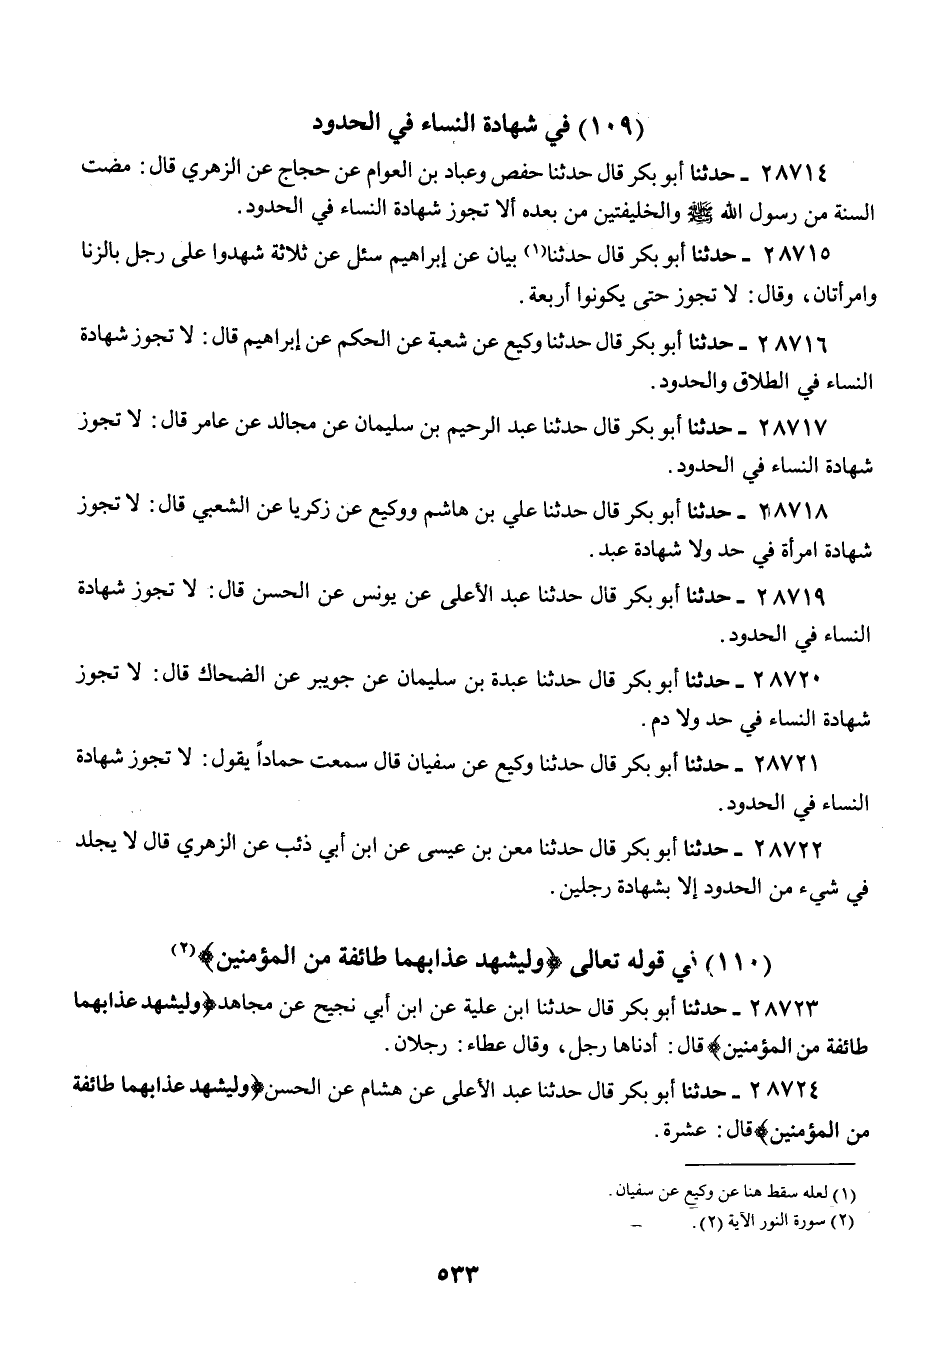 (١٠٩) في شهادة النساء في الحدود
٢٨٧١٤ ـ حدثنا أبو بكر قال حدثنا حفص وعباد بن العوام عن حجاج عن الزهري قال: مضت
السنة من رسول الله ﷺ والخليفتين من بعده ألا تجوز شهادة النساء في الحدود.
٢٨٧١٥ ـ حدثنا أبو بكر قال حدثنا(١) بيان عن إبراهيم سئل عن ثلاثة شهدوا على رجل بالزنا
وامرأتان، وقال: لا تجوز حتى يكونوا أربعة.
٢٨٧١٦ ـ حدثنا أبو بكر قال حدثنا وكيع عن شعبة عن الحكم عن إبراهيم قال: لا تجوز شهادة
النساء في الطلاق والحدود.
٢٨٧١٧ ـ حدثنا أبو بكر قال حدثنا عبد الرحيم بن سليمان عن مجالد عن عامر قال: لا تجوز
شهادة النساء في الحدود.
٢٨٧١٨ ـ حدثنا أبو بكر قال حدثنا علي بن هاشم ووكيع عن زكريا عن الشعبي قال: لا تجوز
شهادة امرأة في حد ولا شهادة عبد.
٢٨٧١٩ ـ حدثنا أبو بكر قال حدثنا عبد الأعلى عن يونس عن الحسن قال: لا تجوز شهادة
النساء في الحدود.
٢٨٧٢٠ ـ حدثنا أبو بكر قال حدثنا عبدة بن سليمان عن جويبر عن الضحاك قال: لا تجوز
شهادة النساء في حد ولا دم.
٢٨٧٢١ ـ حدثنا أبو بكر قال حدثنا وكيع عن سفيان قال سمعت حماداً يقول: لا تجوز شهادة
النساء في الحدود.
٢٨٧٢٢ ـ حدثنا أبو بكر قال حدثنا معن بن عيسى عن ابن أبي ذئب عن الزهري قال لا يجلد
في شيء من الحدود إلا بشهادة رجلين.
(١١٠) في قوله تعالى ﴿وليشهد عذابهما طائفة من المؤمنين﴾(٢)
٢٨٧٢٣ ـ حدثنا أبو بكر قال حدثنا ابن علية عن ابن أبي نجيح عن مجاهد ﴿وليشهد عذابهما
طائفة من المؤمنين﴾ قال: أدناها رجل، وقال عطاء: رجلان.
٢٨٧٢٤ ـ حدثنا أبو بكر قال حدثنا عبد الأعلى عن هشام عن الحسن ﴿وليشهد عذابهما طائفة
من المؤمنين﴾ قال: عشرة.
(١) لعله سقط هنا عن وكيع عن سفيان.
(٢) سورة النور الآية (٢).
٥٣٣